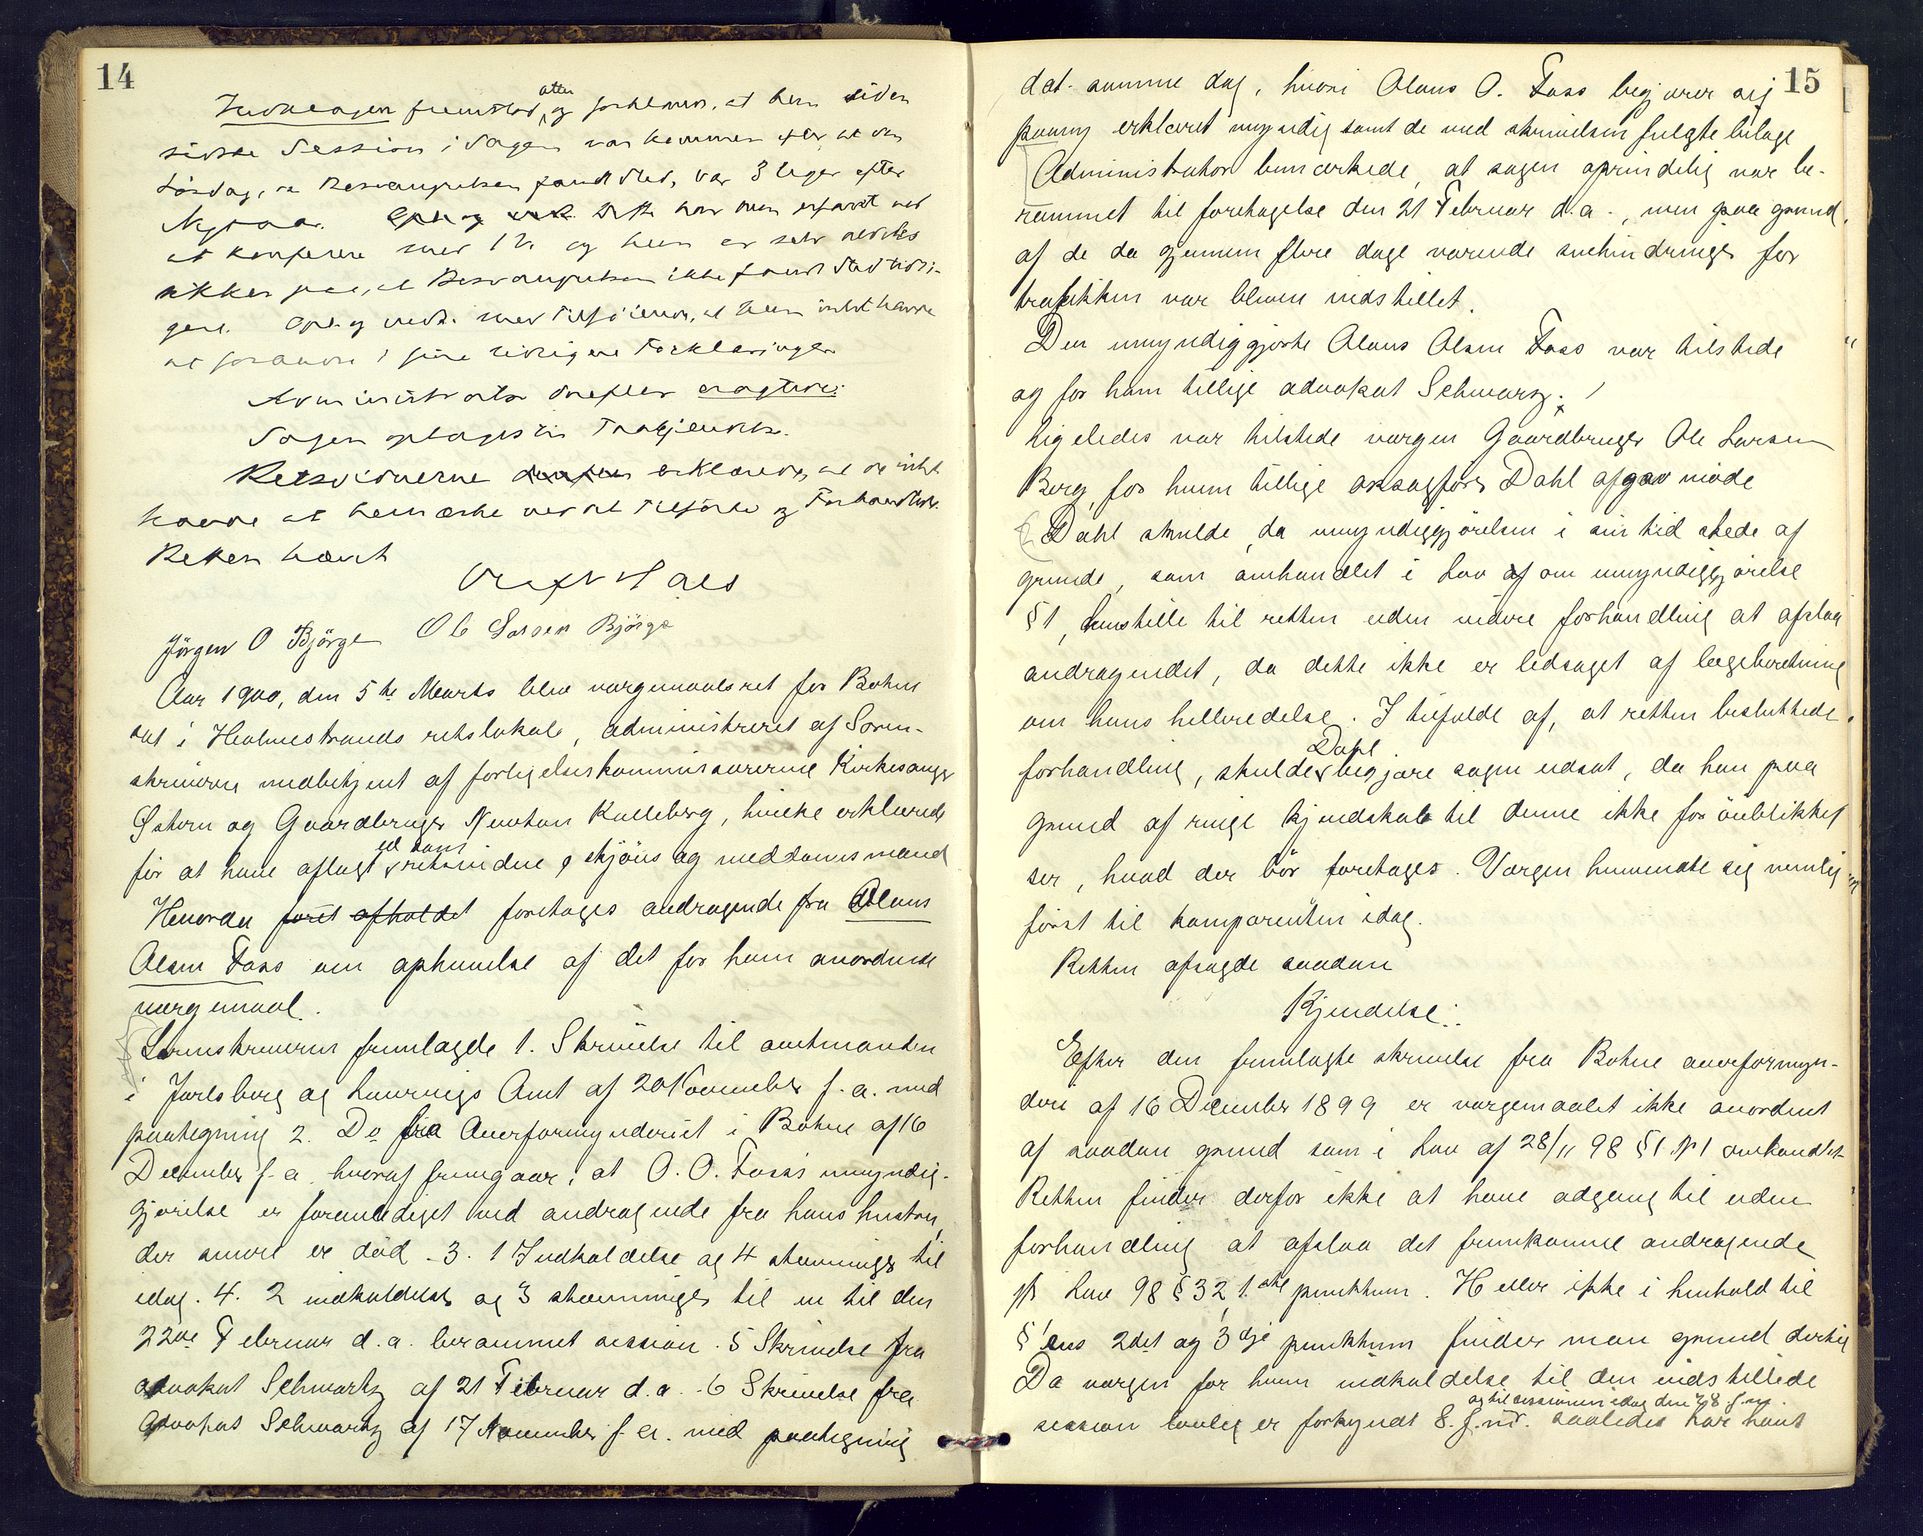 14
Indklagen fremstod atter og forklarer, at hun siden
sidste Session i Sagen var kommen efter, at den
Lørdag, da Besvangrelsen fandt Sted, var 3 Uger efter
Nytaar. Dette har hun erfaret ved
at konferere med og hun er selv
sikker paa, at Besvangrelsen ikke fandt Sted tidli-
gere. Opl. og vedt. med Tilføiende, at hun intet havde
at forandre i sine tidligere Forklaringer
Administrator derefter eragtede:
Sagen optages til Paakjendelse.
Retsvidnerne erklærede, at de intet
havde at bemærke ved det Tilførte og Forhandlede.
Retten hævet
Jörgen O Björge Ole Larsen Björge
Aar 1900, den 5te Marts blev vergemaalsret for Botne
sat i Holmestrands retslokale, administreret af Soren-
skriveren medbetjent af forligelseskommissærerne Kirkesanger
Sætern og Gaardbruger Newton Kulleberg, hvilke erklærede
før at have aflagt ed som retsvidne, skjøns og meddomsmænd
Hvorda foret afholdet foretages andragende fra Olaus
Olsen Foss om ophævelse af det for ham anordnede
vergemaal.
Sorenskriveren fremlagde 1. Skrivelse til amtmanden
i Jarlsberg og Laurvigs Amt af 20 November f.a. med
paategning 2. Do fra Overformynderiet i Botne af 16
December f.a. hvoraf fremgaar, at O. O. Foss's umyndig-
gjørelse er foranlediget ved andragende fra hans hustru,
der senere er død. 3. 1 Indkaldelse og 4 stevninger til
idag. 4. 2 indkaldelser og 3 stævninger til en til den
22de Februar d.a. berammet session. 5 Skrivelse fra
advokat Schwartz af 21 Februar d.a. - 6 Skrivelse fra
advokat Schwartz af 17 November f.a. med paategning
15
dat. samme dag, hvori Olaus O. Foss begjærer sig
paany erklæret myndig samt de med skrivelsen fulgte bilage
Administrator bemærkede, at sagen oprindelig var be-
rammet til foretagelse den 21 Februar d.a., men paa grund
af de da gjennem flere dage varende snehindringer for
trafikken var bleven indstillet.
Den umyndiggjorte Olaus Olsen Foss var tilstede
og for ham tillige advokat Schwartz.
Ligeledes var tilstede vergen Gaardbruger Ole Larsen
Berg, for hvem tillige oversagfører Dahl afgav møde
Dahl skulde, da umyndiggjørelsen i sin tid skede af
grunde, som omhandlet i Lov af om umyndiggjørelse
§ 1, henstille til retten uden videre forhandling at afslaa
andragendet, da dette ikke er ledsaget af lægeberetning
om hans helbredelse. I tilfælde af, at retten besluttede
forhandling, skulde Dahl begjære sagen udsat, da han paa
grund af ringe kjendskab til denne ikke for øieblikket
ser, hvad der bør foretages. Vergen henvendte sig nemlig
først til komparenten idag.
Retten afsagde saadan
Kjendelse:
Efter den fremlagte skrivelse fra Botne overformyn-
deri af 16 December 1899 er vergemaalet ikke anordnet
af saadan grund som i Lov af 28/11 98 § 1 N 1 omhandlet
Retten finder derfor ikke at have adgang til uden
forhandling at afslaa det fremkomne andragende
jfr Lov 98 § 32, 1.ste punktum. Heller ikke i henhold til
§'ens 2det og 3dje punktum finder man grund dertil
Da vergen for hvem indkaldelse til den indstillede
session lovlig er forkyndt 8. f.m. og til sessionen idag den 28 f.m. saaledes har havt